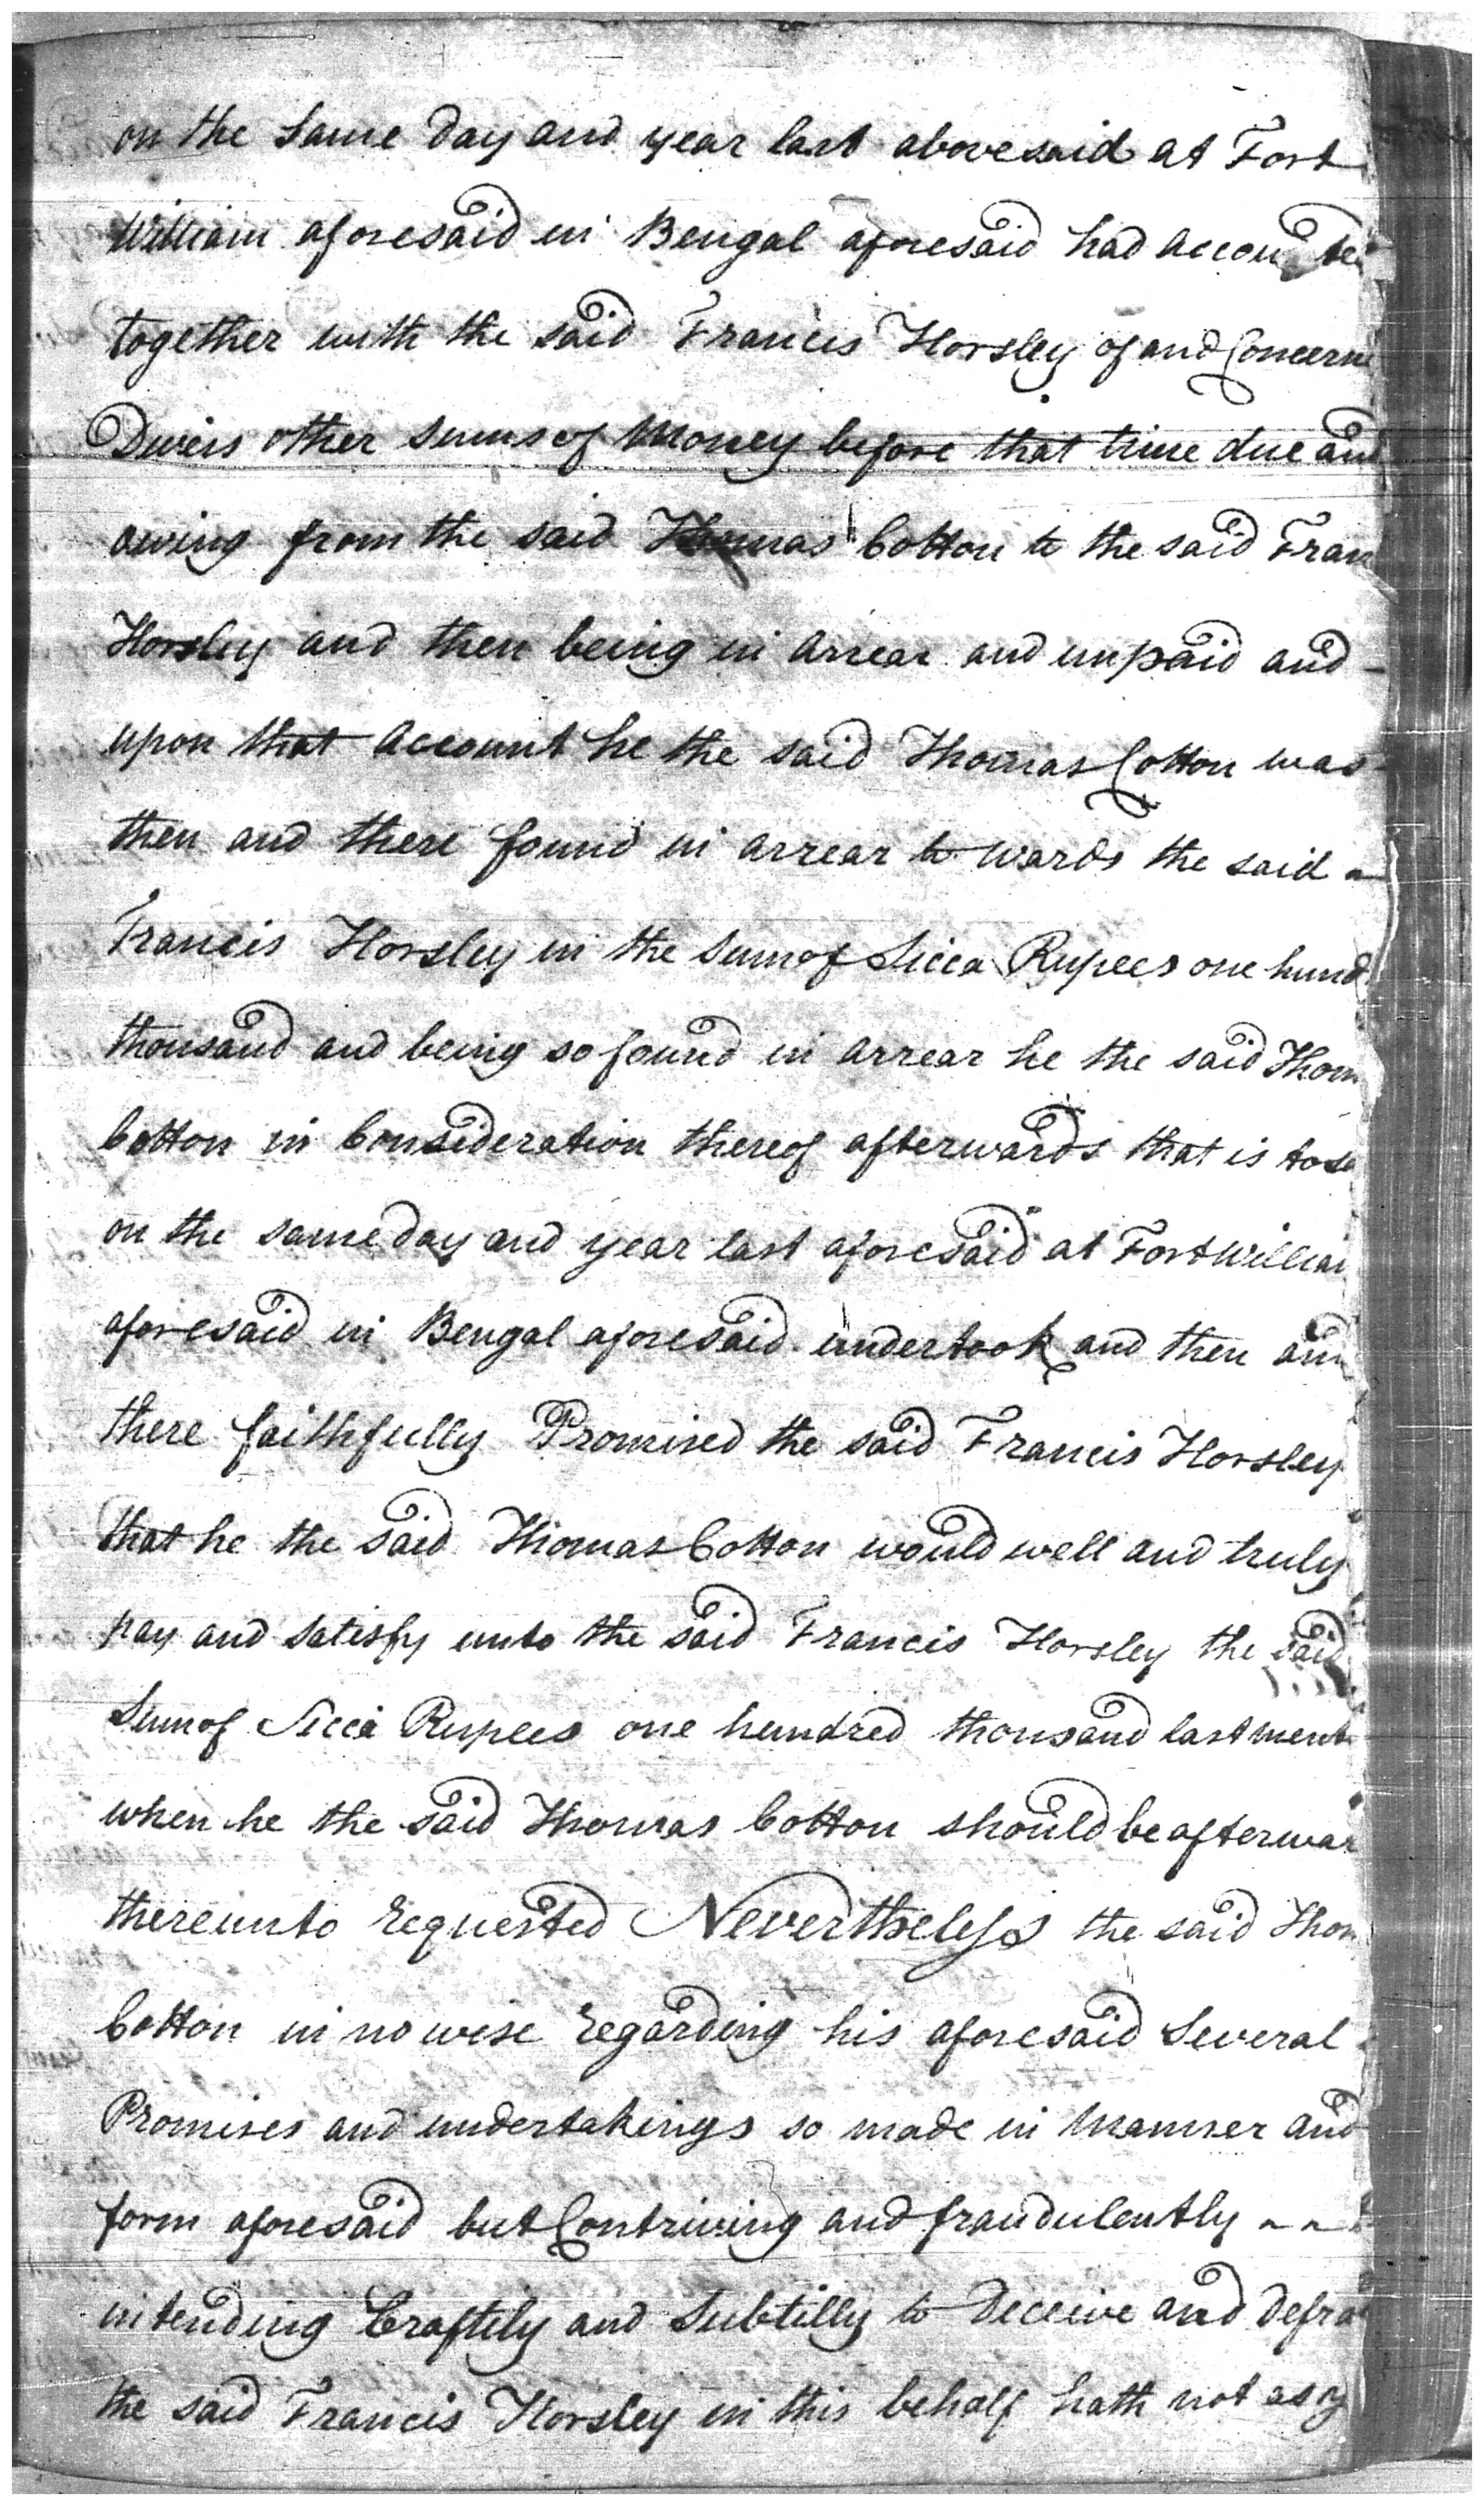 on the Same Day and year last abovesaid at Fort
William aforesaid in Bengal aforesaid had accounted
together with the said Francis Horsley of and Concern
Divers other Sums of Money before that time due and
owing from the said Thomas Cotton to the said Fran
Horsley and then being in Arrear and unpaid and -
upon that Account he the said Thomas Cotton was
then and there found in arrear to wards the said ~
Francis Horsley in the Sum of Sicca Rupees one hund
thousand and being so found in arrear he the said Thom
Cotton in Consideration thereof afterwards that is to sa
on the same day and year last aforesaid at Fort William
aforesaid in Bengal aforesaid undertook and then and
there faithfully Promised the said Francis Horsley
that he the said Thomas Cotton would well and truly
pay and satisfy unto the said Francis Horsley the said
Sum of Sicca Rupees one hundred thousand last ment
when he the said Thomas Cotton should be afterwar
thereunto requested Nevertheless the said Thom
Cotton in no wise regarding his aforesaid Several
Promises and undertakings so made in Manner and
form aforesaid but Contriving and fraudulently ~ ~
intending Craftily and Subtilly to Deceive and Defra
the said Francis Horsley in this behalf hath not as y